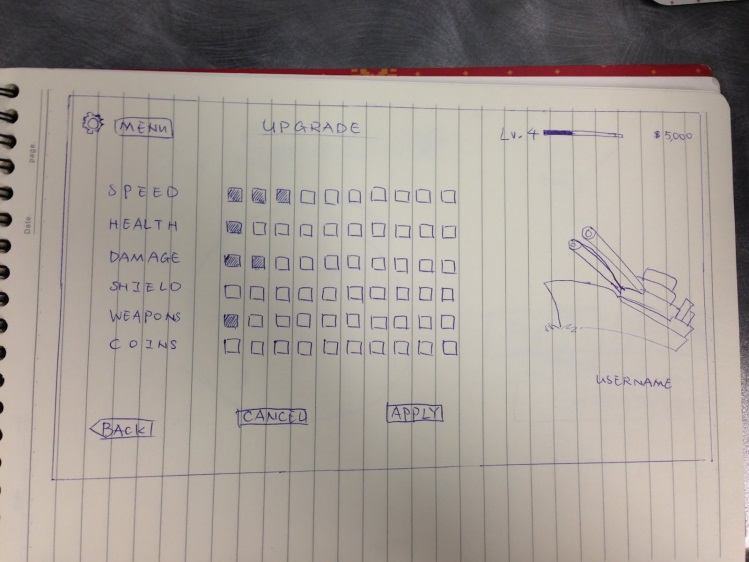 MENU
UPGRADE
Lv. 4
$5,000
SPEED
HEALTH
DAMAGE
SHIELD
WEAPONS
COINS
USERNAME
BACK
CANCEL
APPLY
page.
Date